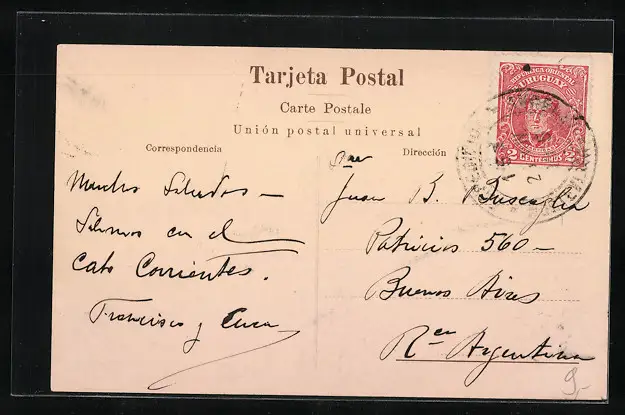 Tarjeta Postal
Carte Postale
Unión postal universal
Correspondencia
Dirección
REPÚBLICA ORIENTAL
URUGUAY
2 CENTÉSIMOS 2
Muchos Saludos —
Salimos en el
Cabo Corrientes.
Francisco y Cuca
Juan B. Buscaglia
Patricios 560 —
Buenos Aires
Rca Argentina
9,-